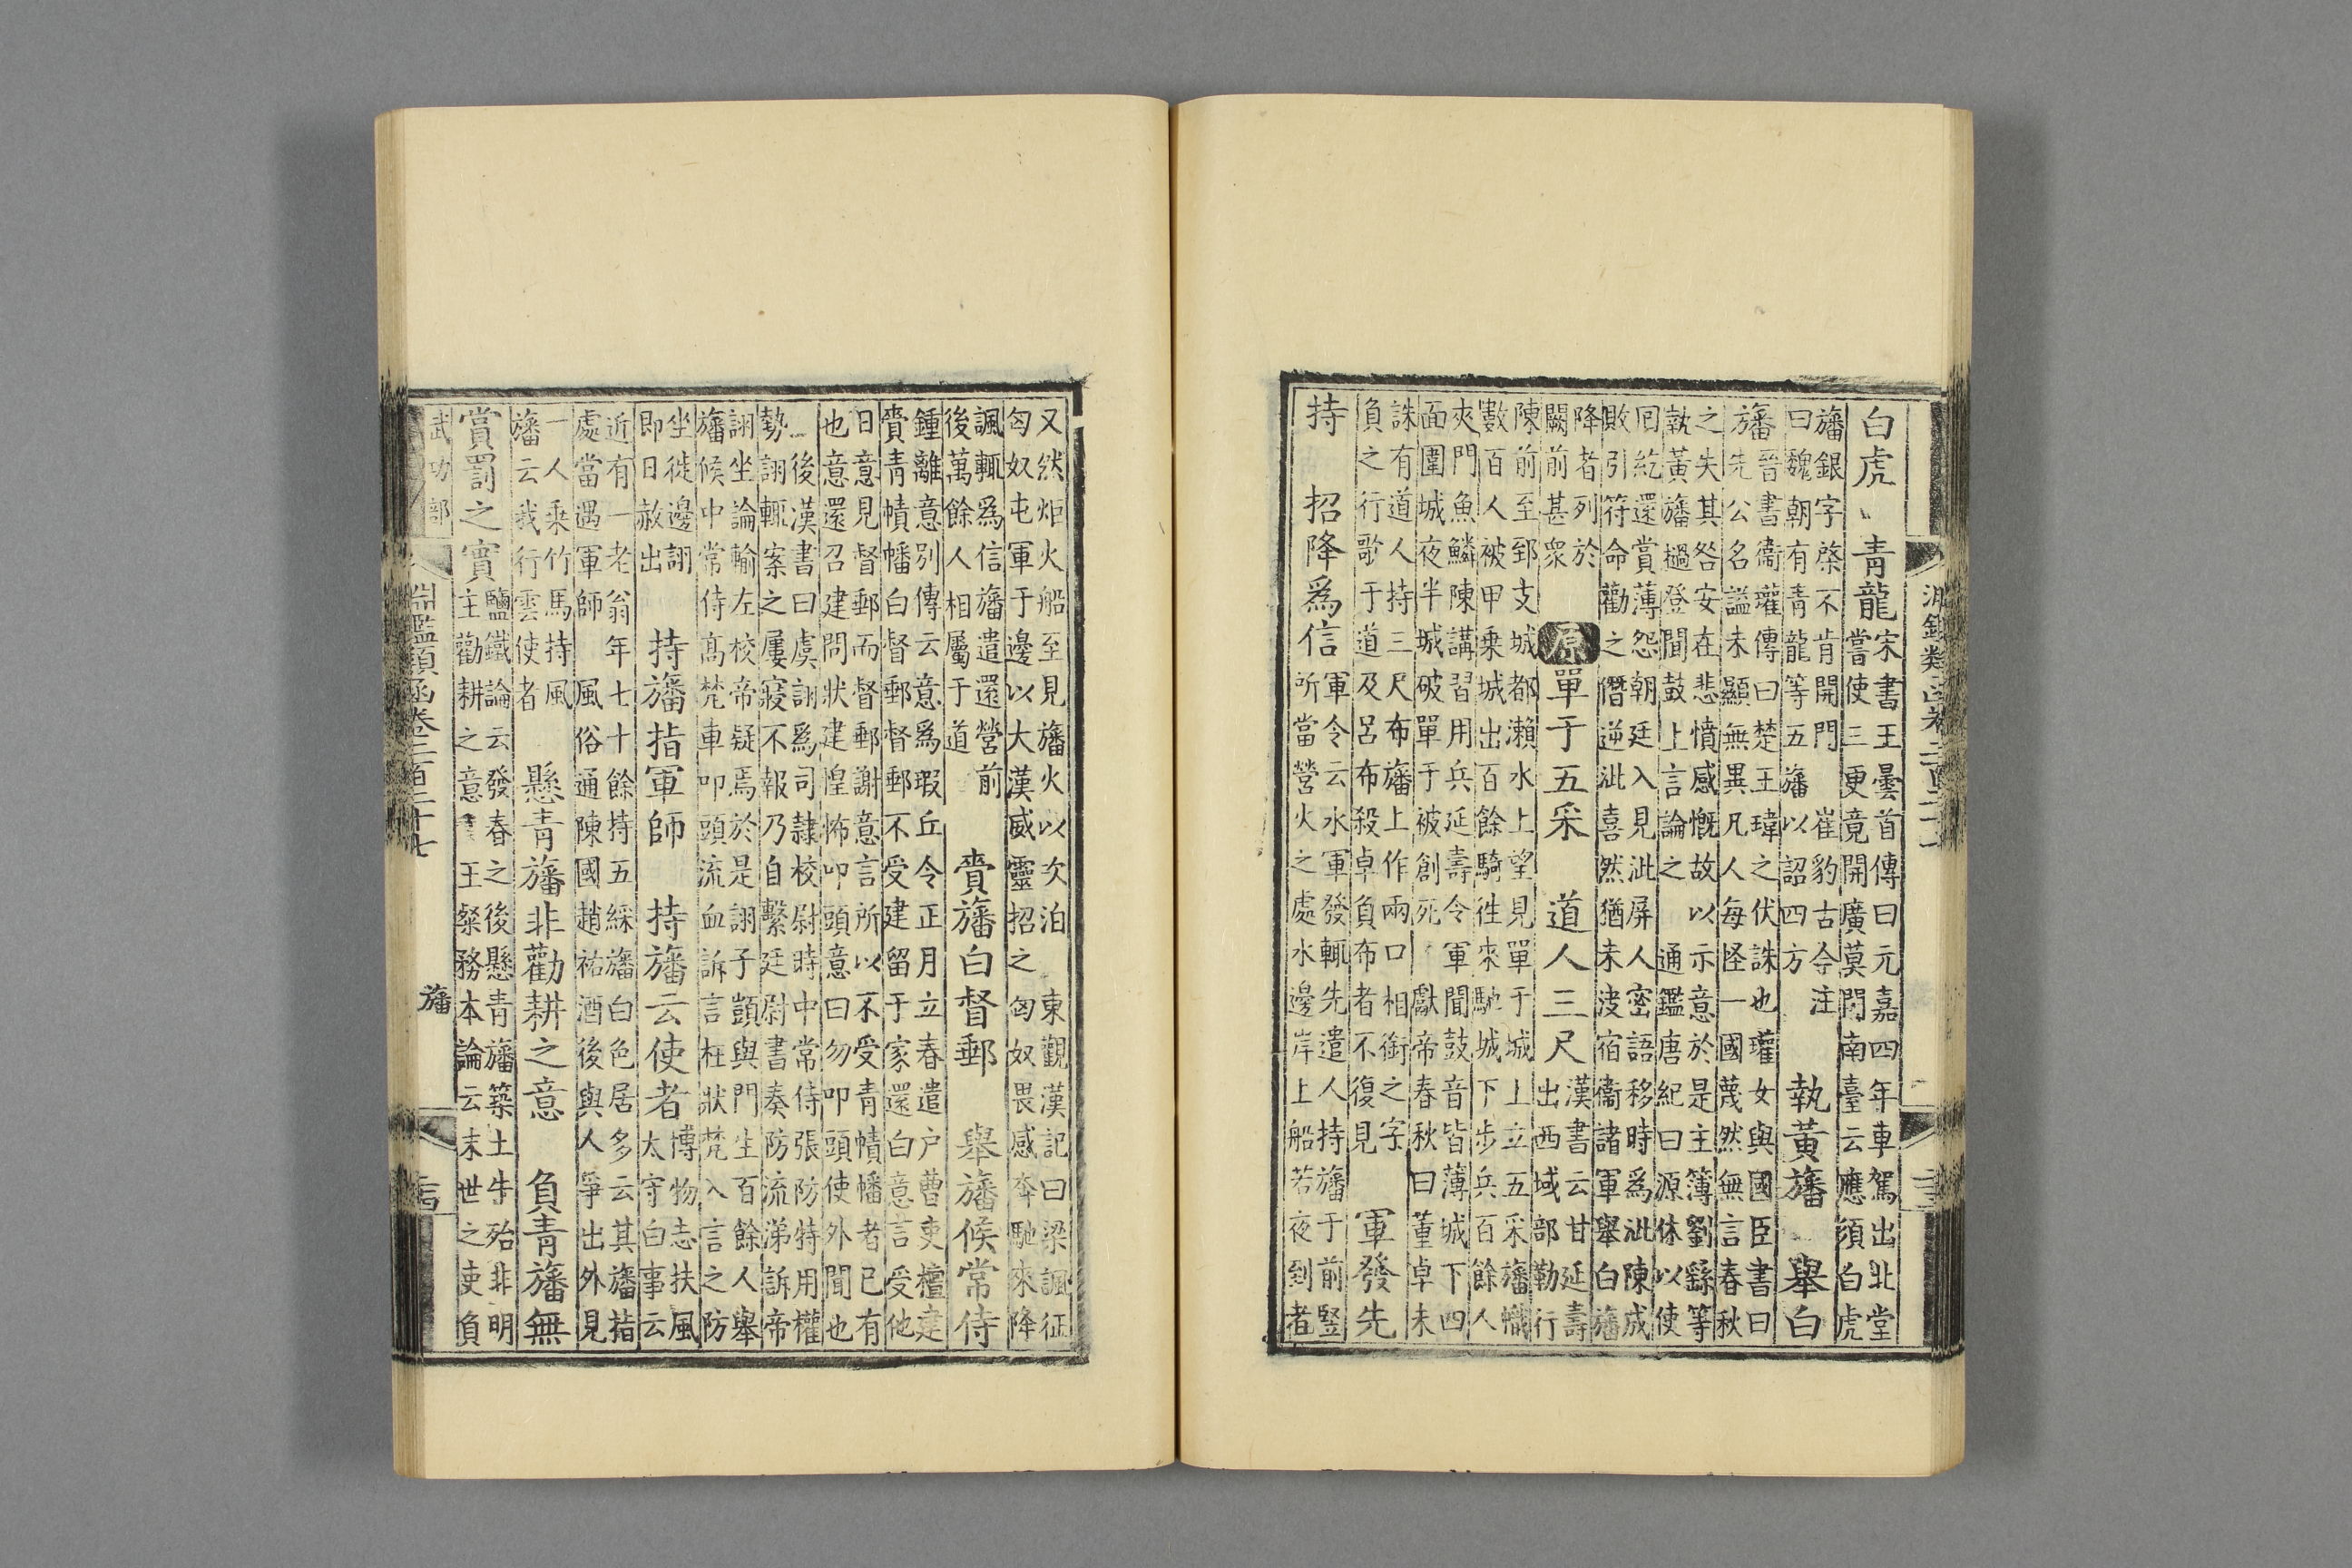 白虎 青龍 宋書王曇首傳曰元嘉四年車駕出北堂
嘗使三更竟開廣莫門南臺云應須白虎
旛銀字棨不肯開門 崔豹古今注
曰魏朝有青龍等五旛以詔四方 執黃旛 舉白
旛 晉書衞瓘傳曰楚王瑋之伏誅也瓘女與國臣書曰
先公名謚未顯無異凡人每怪一國蔑然無言春秋
之失其咎安在悲憤感慨故以示意於是主簿劉繇等
執黃旛撾登聞鼓上言論之 通鑑唐紀曰源休以使
回紇還賞薄怨朝廷入見泚屏人密語移時爲泚陳成
敗引符命勸之僭逆泚喜然猶未決宿衞諸軍舉白旛
降者列於
闕前甚衆 原 單于五采 道人三尺 漢書云甘延壽
出西域部勒行
陳前至郅支城都瀨水上望見單于城上立五采旛幟
數百人被甲乘城出百餘騎徃來馳城下步兵百餘人
夾門魚鱗陳講習用兵延壽令軍聞鼓音皆薄城下四
面圍城夜半城破單于被創死 獻帝春秋曰董卓未
誅有道人持三尺布旛上作兩口相銜之字
負之行歌于道及呂布殺卓負布者不復見 軍發先
持 招降爲信 軍令云水軍發輒先遣人持旛于前竪
所當營火之處水邊岸上船若夜到者
又然炬火船至見旛火以次泊 東觀漢記曰梁諷征
匈奴屯軍于邊以大漢威靈招之匈奴畏感奔馳來降
諷輒爲信旛遣還營前
後萬餘人相屬于道 賫旛白督郵 舉旛候常侍
鍾離意別傳云意爲瑕丘令正月立春遣户曹吏檀建
賫青幘幡白督郵督郵不受建留于家還白意言受他
日意見督郵而督郵謝意言所以不受青幘幡者已有
也意還召建問狀建惶怖叩頭意曰勿叩頭使外聞也
後漢書曰虞詡爲司隷校尉時中常侍張防特用權
勢詡輒案之屢寢不報乃自繫廷尉書奏防流涕訴帝
詡坐論輸左校帝疑焉於是詡子顗與門生百餘人舉
旛候中常侍高梵車叩頭流血訴言枉狀梵入言之防
坐徙邊詡
即日赦出 持旛指軍師 持旛云使者 博物志扶風
太守白事云
近有一老翁年七十餘持五綵旛白色居多云其旛指
處當遇軍師 風俗通陳國趙祐酒後與人爭出外見
一人乘竹馬持風
旛云我行雲使者 懸青旛非勸耕之意 負青旛無
賞罰之實 鹽鐵論云發春之後懸青旛築土牛殆非明
主勸耕之意 王粲務本論云末世之吏負
武功部 淵鑑類函卷二百二十七 旛